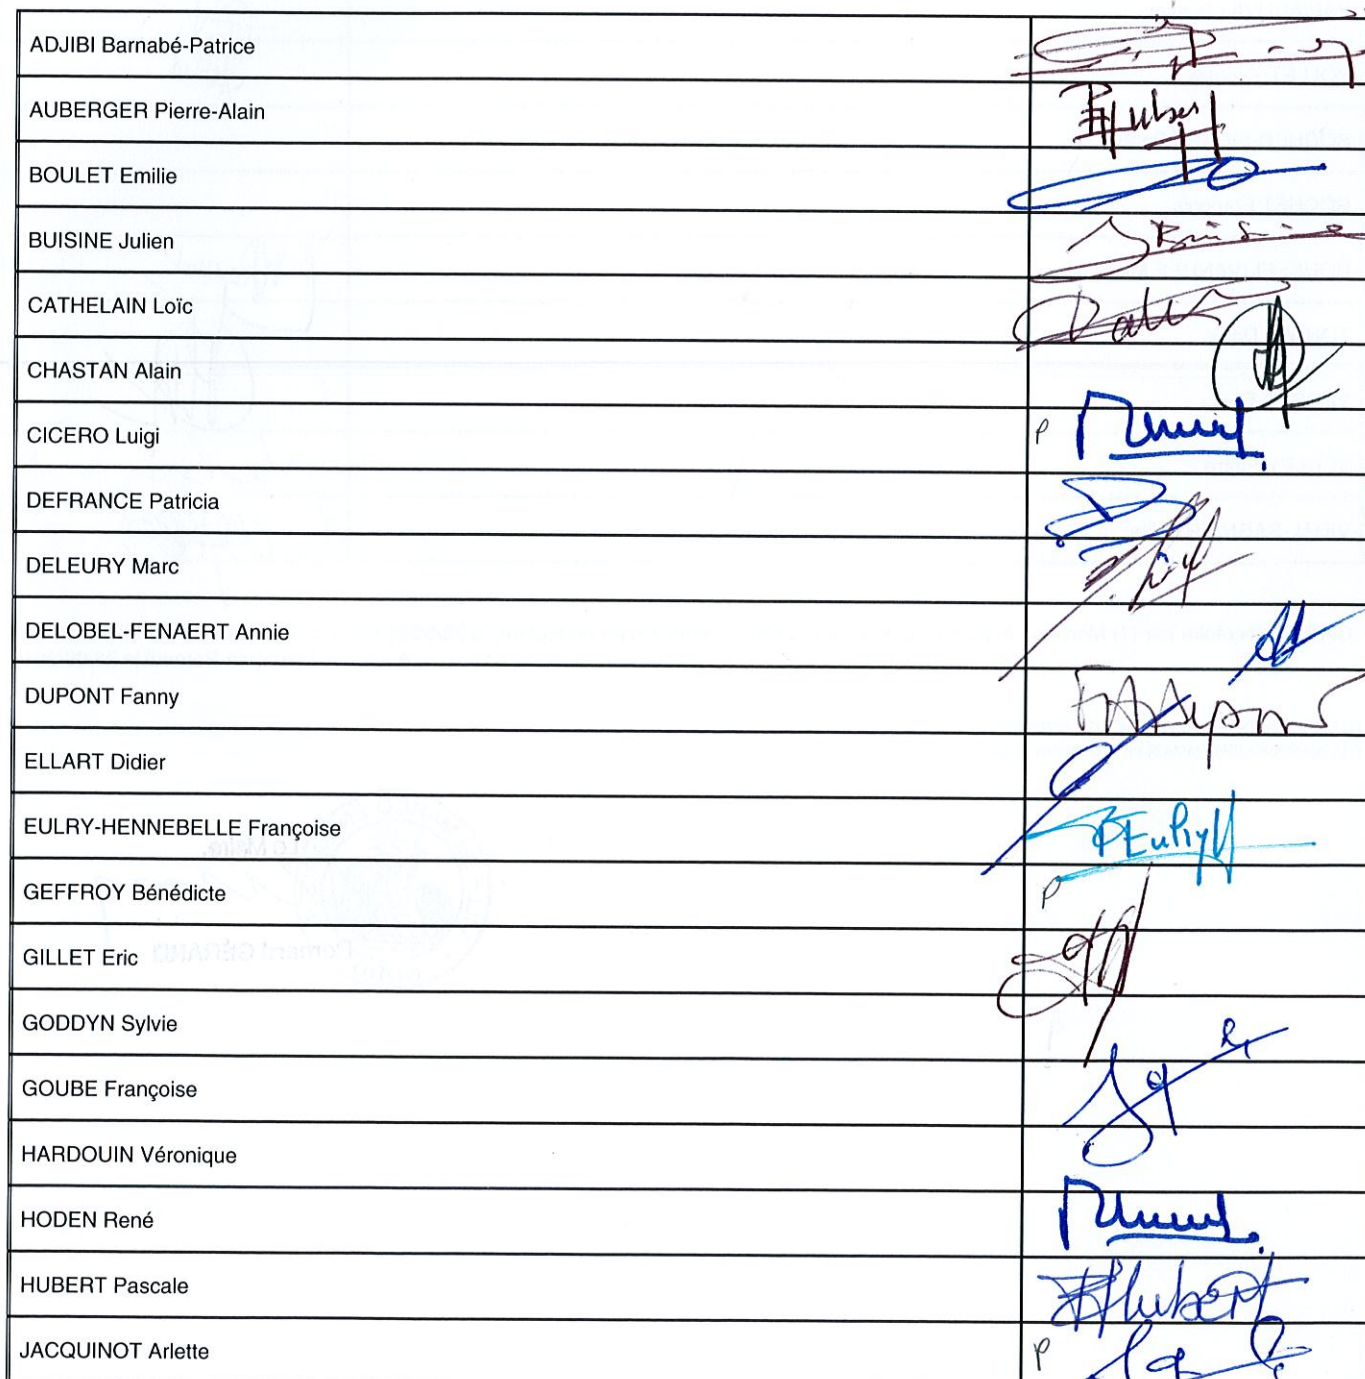 ADJIBI Barnabé-Patrice
AUBERGER Pierre-Alain
BOULET Emilie
BUISINE Julien
CATHELAIN Loïc
CHASTAN Alain
CICERO Luigi P
DEFRANCE Patricia
DELEURY Marc
DELOBEL-FENAERT Annie
DUPONT Fanny
ELLART Didier
EULRY-HENNEBELLE Françoise
GEFFROY Bénédicte P
GILLET Eric
GODDYN Sylvie
GOUBE Françoise
HARDOUIN Véronique
HODEN René
HUBERT Pascale Hubert
JACQUINOT Arlette P